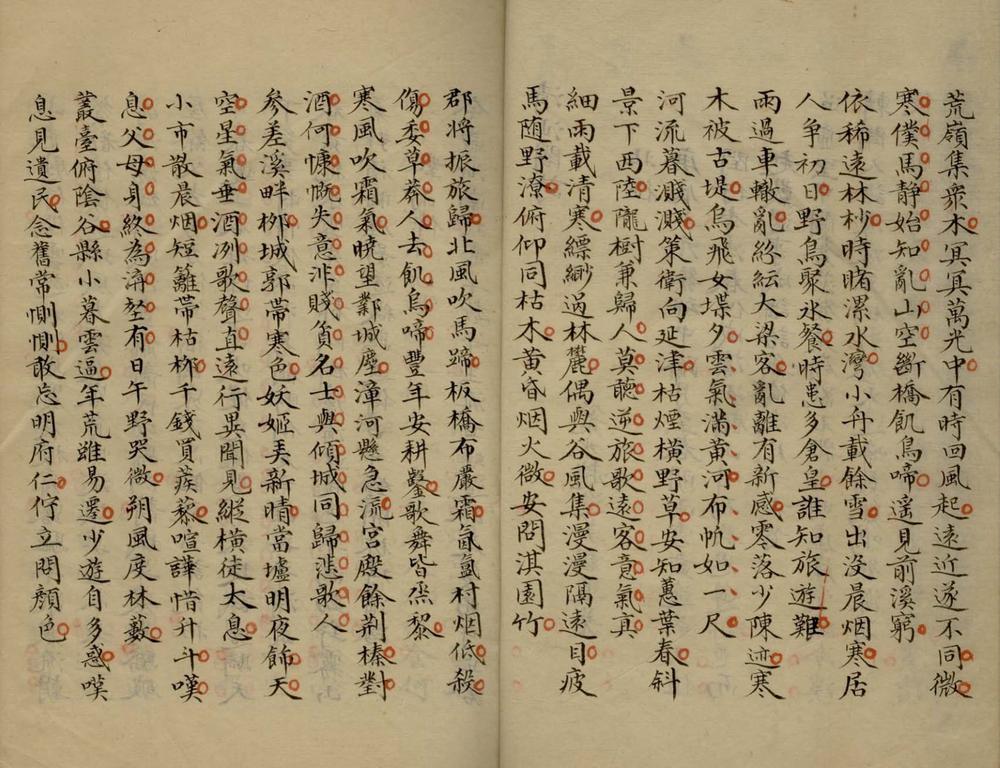 荒嶺集衆木冥冥萬光中有時回風起遠近遂不同微
寒僕馬静始知亂山空斷橋飢鳥啼遥見前溪窮
依稀遠林杪時睹漯水灣小舟載餘雪出没晨烟寒居
人争初日野鳥聚氷餐時患多倉皇誰知旅遊難
雨過車轍亂紛紜大梁客亂離有新感零落少陳迹寒
木被古堤烏飛女堞夕雲氣滿黄河布帆如一尺
河流暮濺濺策衛向延津枯煙横野草安知蕙葉春斜
景下西陸隴樹兼歸人莫聽逆旅歌遠客意氣真
細雨載清寒縹緲過林麓偶與谷風集漫漫隔遠目疲
馬随野潦俯仰同枯木黄昏烟火微安問淇園竹
郡将振旅歸北風吹馬蹄板橋布嚴霜氤氲村烟低殺
傷委草莽人去飢烏啼豐年安耕鑿歌舞皆烝黎
寒風吹霜氣曉望鄴城塵漳河懸急流宫殿餘荆榛對
酒何慷慨失意非賤貧名士與傾城同歸悲歌人
參差溪畔柳城郭帶寒色妖姬美新晴當壚明夜飾天
空星氣垂酒冽歌聲直遠行異聞見縱横徒太息
小市散晨烟短籬帶枯柳千錢買蒺藜喧譁惜升斗嘆
息父母身終為溝壑有日午野哭微朔風度林藪
叢臺俯陰谷縣小暮雲逼年荒雖易遷少遊自多惑嘆
息見遺民念舊常惻惻敢忘明府仁佇立問顔色